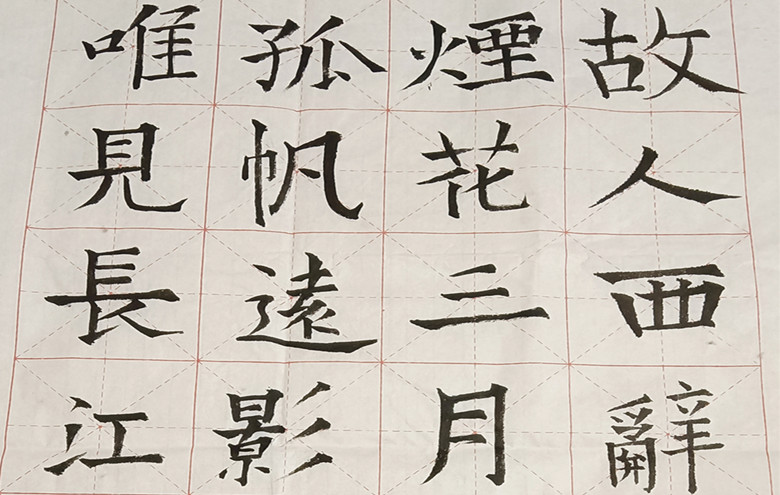 故人西辭
煙花三月
孤帆遠影
唯見長江